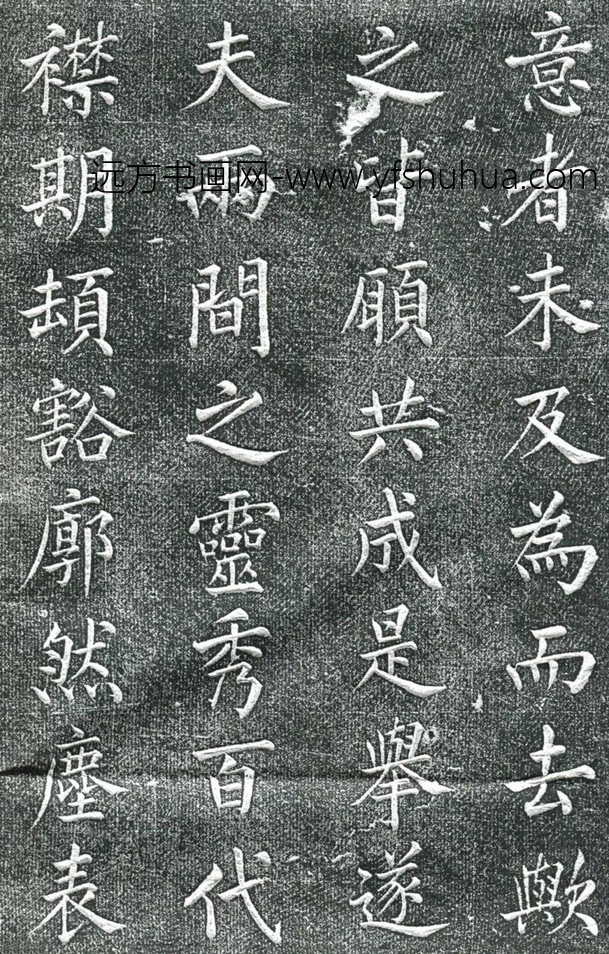 意者未及為而去歟
之皆願共成是舉遂
夫兩間之靈秀百代
襟期頓豁廓然塵表
远方书画网-www.yfshuhua.com